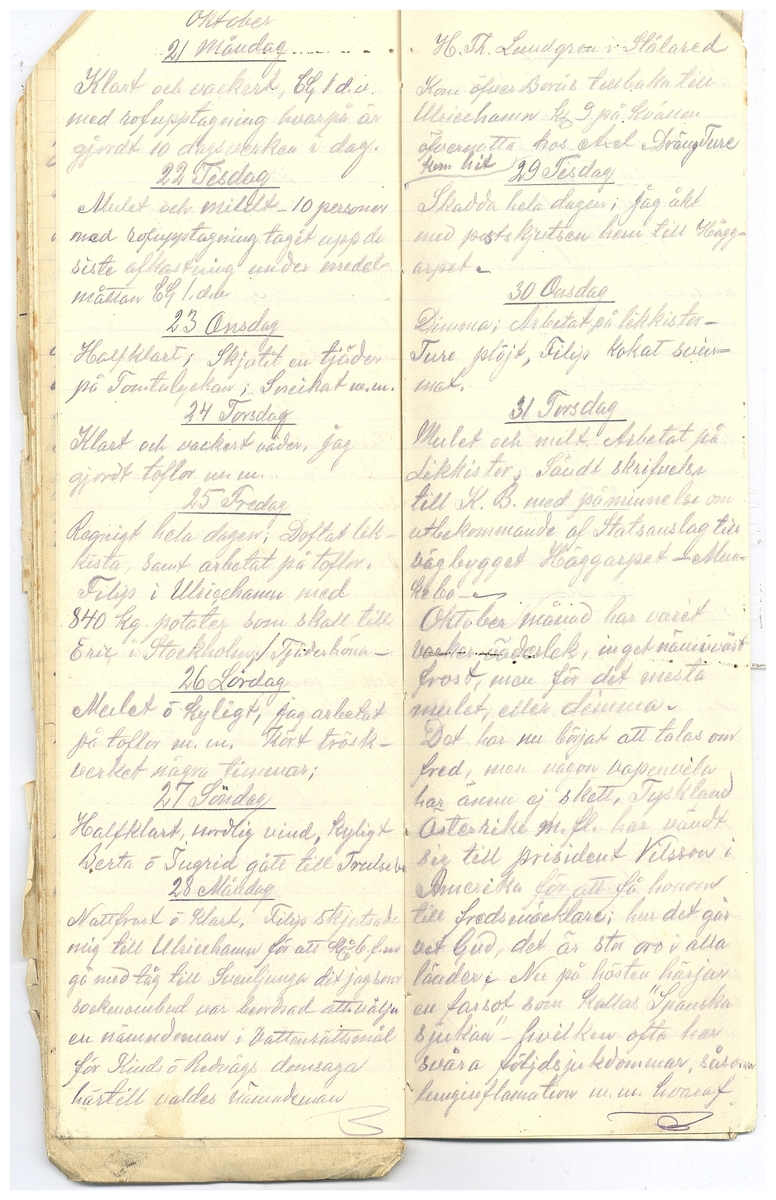 Oktober
21 Måndag
Klart och vackert, EG 1 d.v.
med rofupptagning hvarpå är
gjordt 10 dagsverken i dag.
22 Tisdag
Mulet och mildt – 10 personer
med rofupptagning taget upp de
siste afkastning under medel-
måttan EG 1.d.v.
23 Onsdag
Halfklart; Skjutit en tjäder
på Tomtalyckan; Snickat m.m.
24 Torsdag
Klart och vackert väder, jag
gjordt toflor m.m.
25 Fredag
Regnigt hela dagen; Doftat lik-
kista, samt arbetat på toflor.
Filip i Ulricehamn med
840 kg potater som skall till
Eric i Stockholm / Tjäderhöna –
26 Lördag
Mulet ö kyligt, jag arbetat
på toflor m.m. Kört trösk-
verket några timmar;
27 Söndag
Halfklart, nordlig vind, kyligt
Berta ö Ingrid gått till
28 Måndag
Nattfrost ö klart, Filip skjutsade
mig till Ulricehamn för att kl 6 f.m
gå med tåg till Svenljunga dit jag som
sockenombud var beordrad att välja
en nämndeman i Vattenrättsmål
för Kinds ö Redvägs domsaga
härtill valdes nämndeman
H. Th. Lundgren i Stålared
Kom öfver Borås tillbaka till
Ulricehamn kl 9 på kvällen
öfvernatta hos Axel Dräng Ture
kom hit
29 Tisdag
Skadda hela dagen; jag åkt
med postskjutsen hem till Hägg-
arpet –
30 Onsdag
Dimma; Arbetat på likkistor –
Ture plöjt, Filip kokat svin-
mat.
31 Torsdag
Mulet och milt. Arbetat på
Likkistor; Sändt skrifvelse
till K. B. med påminnelse om
utbekommande af Statsanslag till
vägbygget Häggarpet – Mun-
kebo –
Oktober månad har varit
vacker väderlek, inget nämnvärt
frost, men för det mesta
mulet, eller dimma.
Det har nu börjat att talas om
fred, men någon vapenvila
har ännu ej skett, Tyskland
Österike m.fl. har vändt
sig till president Vilsson i
Amerika för att få honom
till fredsmäcklare; hur det går
vet Gud, det är stor oro i alla
länder; Nu på hösten härjar
en farsot som kallas "Spanska
sjukan" – hvilken ofta har
svåra följdsjukdommar, såsom
lunginflamation m.m. hvaraf